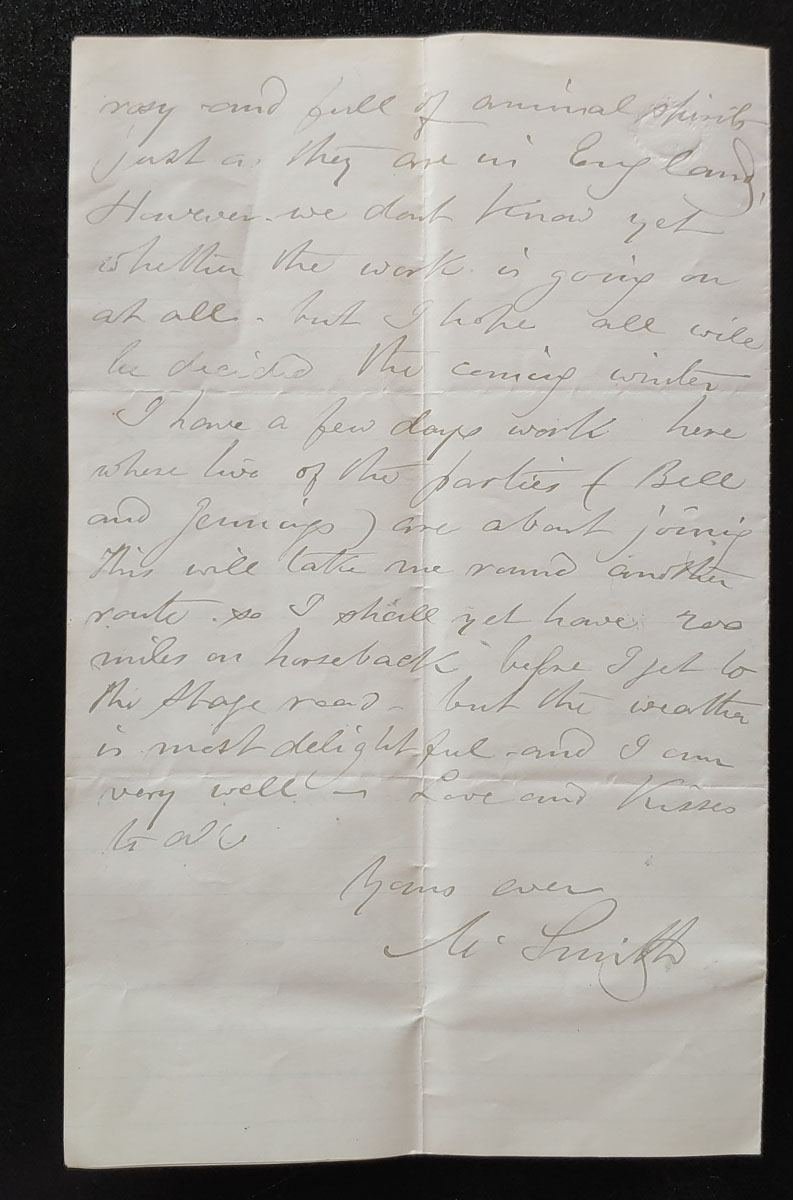 rosy and full of animal spirits
just as they are in England.
However - we dont know yet
whether the work is going on
at all - but I hope all will
be decided the coming winter
I have a few days work here
where two of the parties ( Bell
and Jennings ) are about joining
This will take me round another
route. so I shall yet have 200
miles on horseback before I get to
the Stage road - but the weather
is most delightful - and I am
very well - Love and Kisses
to all
Yours ever
Smith